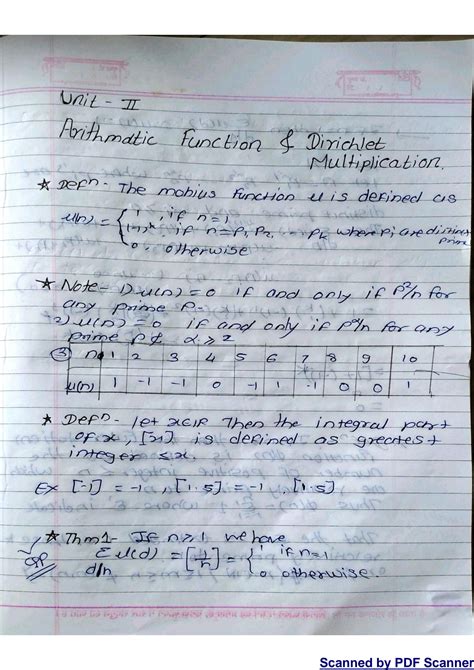 Unit - II
Arithmatic Function & Dirichlet
Multiplication.
* Defn - The mobius function u is defined as
u(n) = { 1, if n=1
(-1)^k, if n = P1 P2 Pk where Pi are distinct prime
0, otherwise
* Note - 1) u(n) = 0 if and only if P²/n for
any prime P.
2) u(n) = 0 if and only if P^α/n for any
prime P & α ≥ 2
③ n 1 2 3 4 5 6 7 8 9 10
u(n) 1 -1 -1 0 -1 1 -1 0 0 1
* Defn - let x∈IR Then the integral part
of x, [x] is defined as greatest
integer ≤ x.
Ex [-1] = -1, [1.5] = -1, [1.5]
* Thm 1 - If n ≥ 1 we have
Σ u(d) = [1/n] = { 1 if n=1
d/n 0 otherwise.
Scanned by PDF Scanner